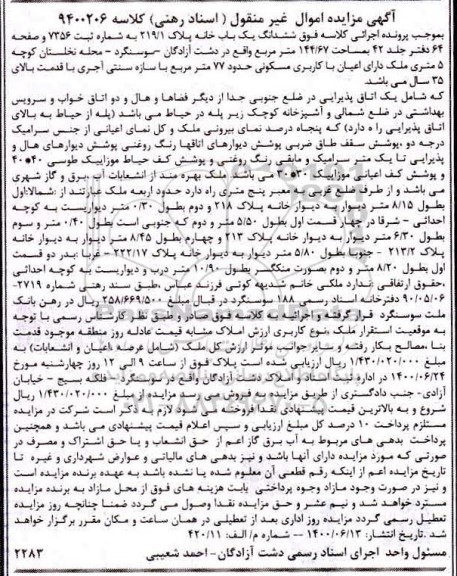 آگهی مزایده اموال غیر منقول ( اسناد رهنی) کلاسه ۹۴۰۰۲۰۶
بموجب پرونده اجرائی کلاسه فوق ششدانگ یک باب خانه پلاک ۲۱۹/۱ به شماره ثبت ۷۳۵۶ و صفحه
۶۴ دفتر جلد ۴۲ بمساحت ۱۴۴/۶۷ متر مربع واقع در دشت آزادگان –سوسنگرد - محله نخلستان کوچه
۵ متری ملک دارای اعیان با کاربری مسکونی حدود ۷۷ متر مربع با سازه سنتی آجری با قدمت بالای
۳۵ سال می باشد.
که شامل یک اتاق پذیرایی در ضلع جنوبی جدا از دیگر فضاها و هال و دو اتاق خواب و سرویس
بهداشتی در ضلع شمالی و آشپزخانه کوچک زیر پله در حیاط می باشد (پله از حیاط به بالای
اتاق پذیرایی را ه دارد) که پنجاه درصد نمای بیرونی ملک و کل نمای اعیانی از جنس سرامیک
درجه دو ،پوشش سقف طاق ضربی پوشش دیوارهای اتاقها رنگ روغنی پوشش دیوارهای هال و
پذیرایی تا یک متر سرامیک و مابقی رنگ روغنی و پوشش کف حیاط موزاییک طوسی ۴۰*۴۰
و پوشش کف اعیانی موزاییک ۳۰*۳۰ می باشد. ملک بهره مند از انشعابات آب ،برق و گاز شهری
می باشد و از طرف ضلع غربی به معبر پنج متری راه دارد حدود اربعه ملک عبارتند از :شمالا:اول
بطول ۸/۱۵ متر دیوار به دیوار خانه پلاک ۲۱۸ و دوم بطول ۰/۳۰ متر دیواریست به کوچه
احداثی – شرقا در چهار قسمت اول بطول ۵/۵۰ متر و دوم که جنوبی است بطول ۰/۴۰ متر و سوم
بطول ۶/۳۰ متر دیوار به دیوار خانه پلاک ۲۱۳ و چهارم بطول ۸/۴۵ متر دیوار به دیوار خانه
پلاک ۲۱۳/۲ - جنوبا بطول ۵/۸۰ متر دیوار به دیوار خانه پلاک ۲۲۲/۱۷- غربا :بدر دو قسمت
اول بطول ۸/۲۰ متر و دوم بصورت منکسر بطول ۱۰/۹۰ متر درب و دیواریست به کوچه احداثی
،حقوق ارتفاقی ندارد ملکی خانم شدیهه کوتی فرزند عباس ،طبق سند رهنی شماره ۲۷۱۹-
۹۰/۰۵/۰۶ دفترخانه اسناد رسمی ۱۸۸ سوسنگرد در قبال مبلغ ۲۵۸/۶۶۹/۵۰۰ ریال در رهن بانک
ملت سوسنگرد قرار گرفته و اجرائیه تحت کلاسه فوق صادر و طبق نظر کارشناس رسمی با توجه
به موقعیت استقرار ملک ،نوع کاربری ارزش املاک مشابه قیمت عادله روز منطقه موجود قدمت
بنا ،مصالح بکار رفته و سایر جوانب موثر ارزش کل ملک (شامل عرصه ،اعیان و انشعابات) به
مبلغ ۱/۴۳۰/۰۲۰/۰۰۰ ریال ارزیابی شده است پلاک فوق از ساعت ۹ الی ۱۲ روز چهارشنبه مورخ
۱۴۰۰/۰۶/۲۴ در اداره ثبت اسناد و املاک دشت آزادگان واقع در سوسنگرد - فلکه بسیج – خیابان
آزادی- جنب دادگستری از طریق مزایده به فروش می رسد مزایده از مبلغ ۱/۴۳۰/۰۲۰/۰۰۰ ریال
شروع و به بالاترین قیمت پیشنهادی نقدا فروخته می شود لازم به ذکر است شرکت در مزایده
مستلزم پرداخت ۱۰ درصد کل مبلغ ارزیابی و سپس اعلام قیمت پیشنهادی می باشد و همچنین
پرداخت بدهی های مربوط به آب برق گاز اعم از حق انشعاب و یا حق اشتراک و مصرف در
صورتی که مورد مزایده دارای آنها باشد و نیز بدهی های مالیاتی و عوارض شهرداری و غیره تا
تاریخ مزایده اعم از اینکه رقم قطعی آن معلوم شده یا نشده باشد به عهده برنده مزایده است
و نیز در صورت وجود مازاد وجوه پرداختی بابت هزینه های فوق از محل مازاد به برنده مزایده
مسترد خواهد شد و نیم عشر و حق مزایده نقدا وصول می گردد ضمنا چنانچه روز مزایده
تعطیل رسمی گردد مزایده روز اداری بعد از تعطیلی در همان ساعت و مکان مقرر برگزار خواهد
شد .تاریخ انتشار: ۱۴۰۰/۰۶/۱۳ -- شماره م/ الف: ۴۲۰/۱۱
مسئول واحد اجرای اسناد رسمی دشت آزادگان- احمد شعیبی ۲۲۸۳